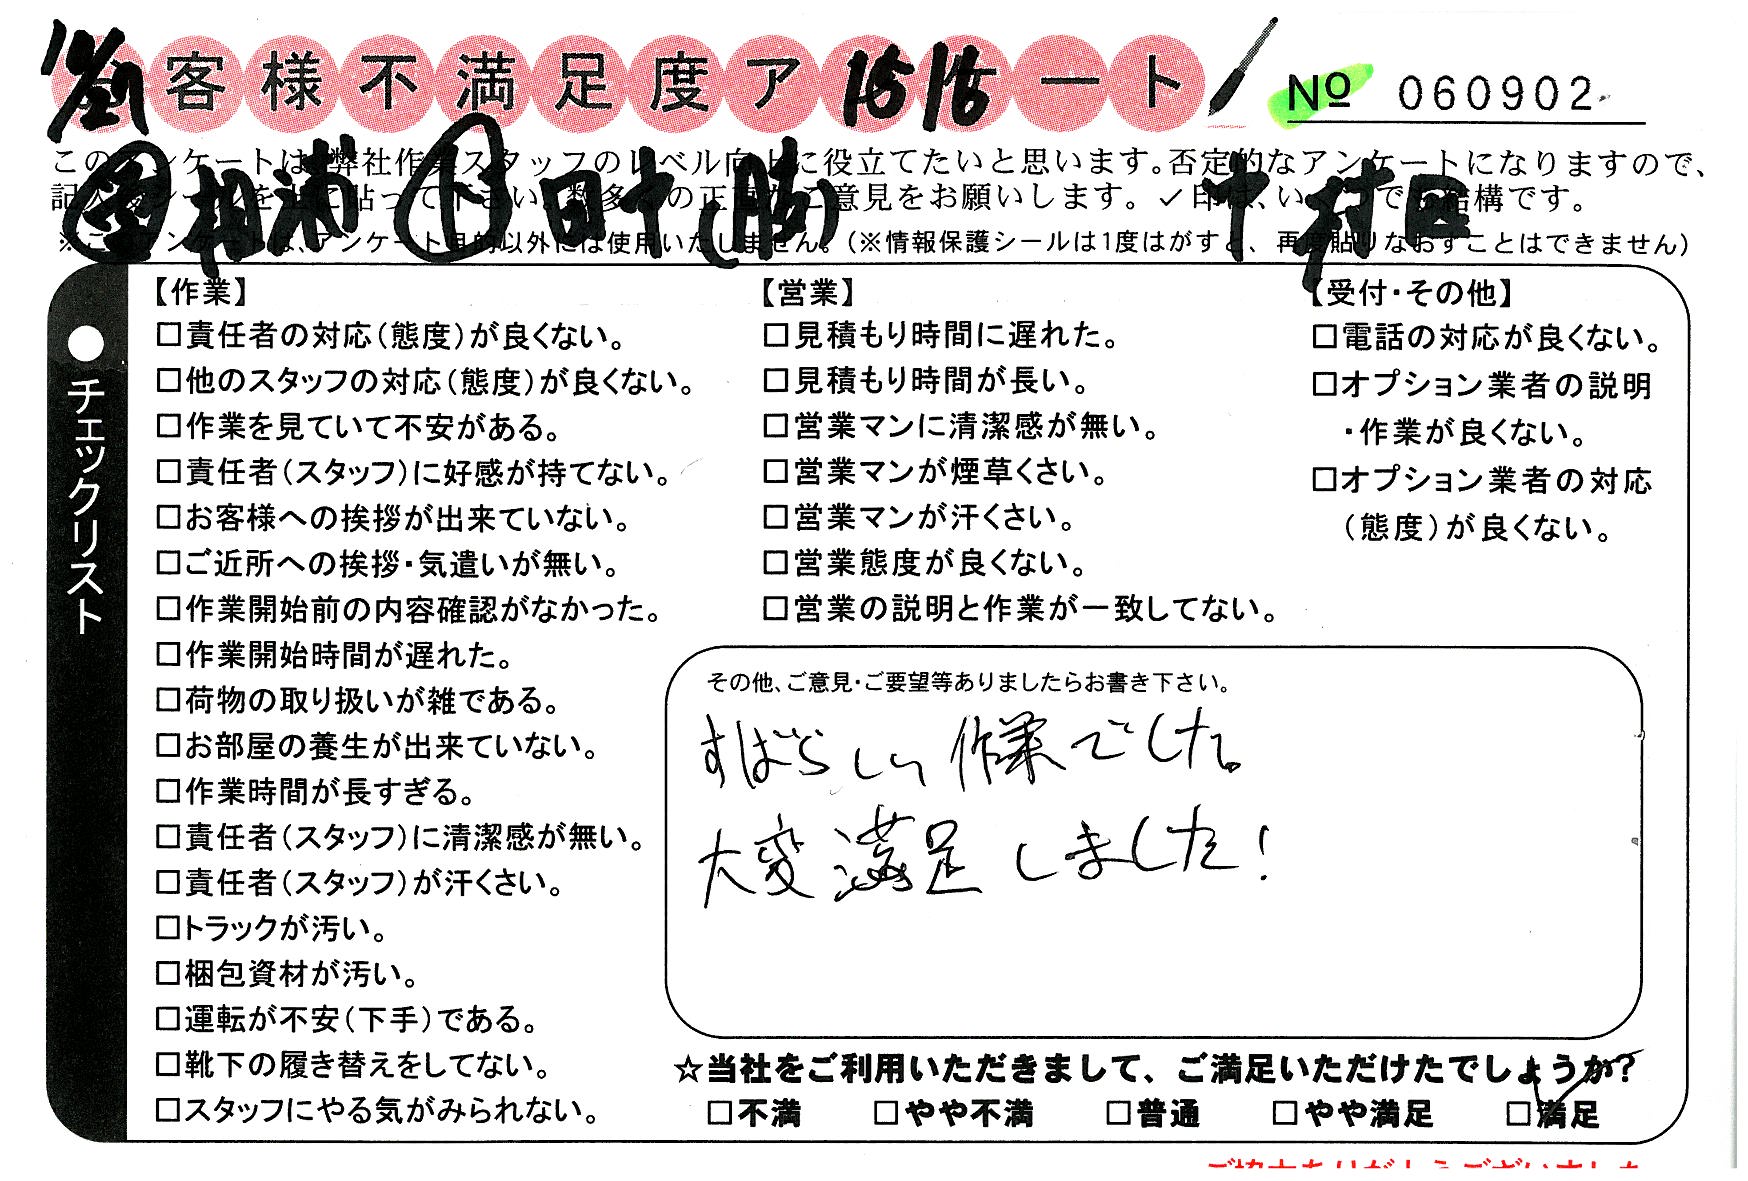 客様不満足度ア 15 16 ート
No 060902
このアンケートは、弊社作業スタッフのレベル向上に役立てたいと思います。否定的なアンケートになりますので、
相浦 田中(勝) 中村区
記入後シールを上に貼って下さい。数多くの正直なご意見をお願いします。✓印は、いくつでも結構です。
※このアンケートは、アンケート目的以外には使用いたしません。(※情報保護シールは1度はがすと、再度貼りなおすことはできません)
●チェックリスト
【作業】
□責任者の対応(態度)が良くない。
□他のスタッフの対応(態度)が良くない。
□作業を見ていて不安がある。
□責任者(スタッフ)に好感が持てない。
□お客様への挨拶が出来ていない。
□ご近所への挨拶・気遣いが無い。
□作業開始前の内容確認がなかった。
□作業開始時間が遅れた。
□荷物の取り扱いが雑である。
□お部屋の養生が出来ていない。
□作業時間が長すぎる。
□責任者(スタッフ)に清潔感が無い。
□責任者(スタッフ)が汗くさい。
□トラックが汚い。
□梱包資材が汚い。
□運転が不安(下手)である。
□靴下の履き替えをしてない。
□スタッフにやる気がみられない。
【営業】
□見積もり時間に遅れた。
□見積もり時間が長い。
□営業マンに清潔感が無い。
□営業マンが煙草くさい。
□営業マンが汗くさい。
□営業態度が良くない。
□営業の説明と作業が一致してない。
【受付・その他】
□電話の対応が良くない。
□オプション業者の説明
・作業が良くない。
□オプション業者の対応
(態度)が良くない。
その他、ご意見・ご要望等ありましたらお書き下さい。
すばらしい作業でした。
大変満足しました!
☆当社をご利用いただきまして、ご満足いただけたでしょうか?
□不満 □やや不満 □普通 □やや満足 □満足
ご協力ありがとうございました